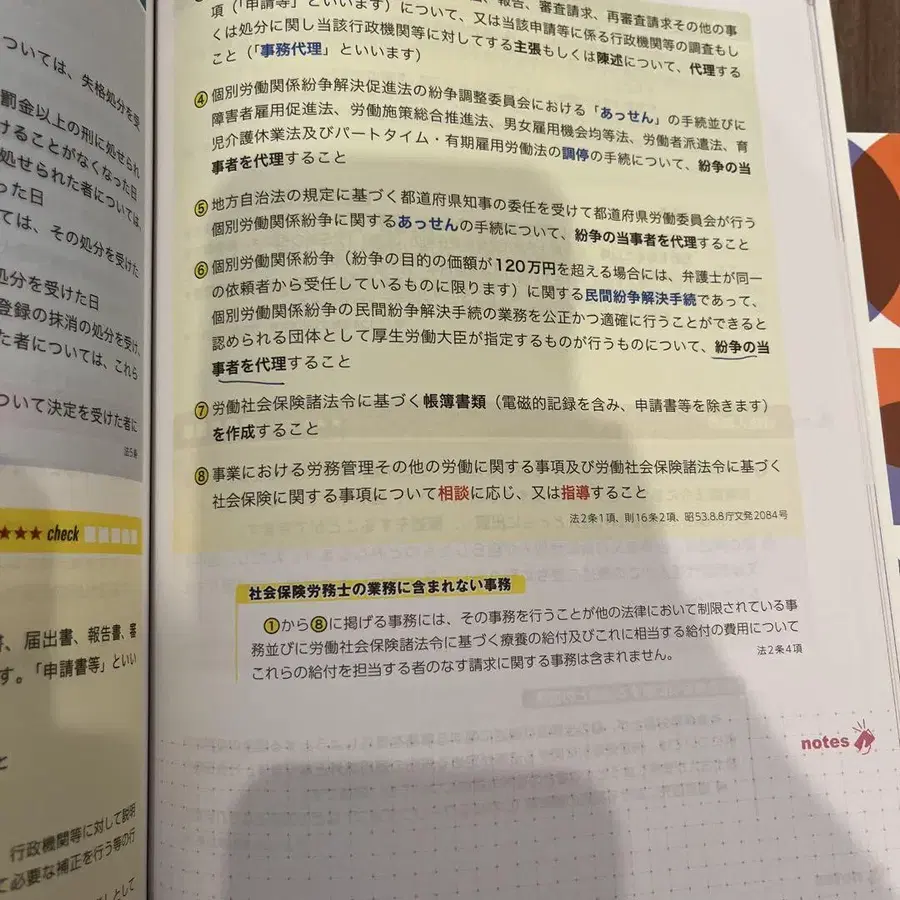 ついては、失格処分を受
罰金以上の刑に処せられ
けることがなくなった日
処せられた者については、
った日
ては、その処分を受けた
処分を受けた日
登録の抹消の処分を受け、
た者については、これら
ついて決定を受けた者に
法5条
★★★ check
書、届出書、報告書、審
す。「申請書等」といい
と
行政機関等に対して説明
て必要な補正を行う等の行
として
報告、審査請求、再審査請求その他の事
項(「申請等」といいます)について、又は当該申請等に係る行政機関等の調査もし
くは処分に関し当該行政機関等に対してする主張もしくは陳述について、代理する
こと(「事務代理」といいます)
④個別労働関係紛争解決促進法の紛争調整委員会における「あっせん」の手続並びに
障害者雇用促進法、労働施策総合推進法、男女雇用機会均等法、労働者派遣法、育
児介護休業法及びパートタイム・有期雇用労働法の調停の手続について、紛争の当
事者を代理すること
⑤地方自治法の規定に基づく都道府県知事の委任を受けて都道府県労働委員会が行う
個別労働関係紛争に関するあっせんの手続について、紛争の当事者を代理すること
⑥個別労働関係紛争(紛争の目的の価額が120万円を超える場合には、弁護士が同一
の依頼者から受任しているものに限ります)に関する民間紛争解決手続であって、
個別労働関係紛争の民間紛争解決手続の業務を公正かつ適確に行うことができると
認められる団体として厚生労働大臣が指定するものが行うものについて、紛争の当
事者を代理すること
⑦労働社会保険諸法令に基づく帳簿書類(電磁的記録を含み、申請書等を除きます)
を作成すること
⑧事業における労務管理その他の労働に関する事項及び労働社会保険諸法令に基づく
社会保険に関する事項について相談に応じ、又は指導すること
法2条1項、則16条2項、昭53.8.8庁文発2084号
社会保険労務士の業務に含まれない事務
①から⑧に掲げる事務には、その事務を行うことが他の法律において制限されている事
務並びに労働社会保険諸法令に基づく療養の給付及びこれに相当する給付の費用について
これらの給付を担当する者のなす請求に関する事務は含まれません。
法2条4項
notes